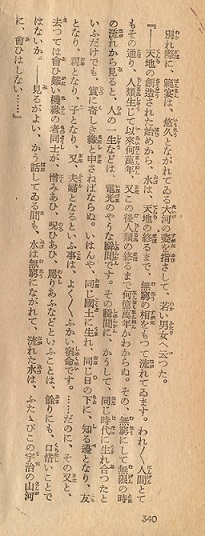 別れ際に、範宴は、悠々とながれてゐる大河の姿を指さして、若い男女へ云つた。
『――天地の創造された始めから、水は、天地の終るまで、無窮の相をもつて流れてゐます。われ〳〵人間とて
もその通り、人類生じて以来何萬年、又この後人類の終るまで何億萬年かわからぬ。その、無窮にして無限の時
の流れから見ると、人の一生などは、電光のやうな瞬間です。その瞬間に、かうして、同じ時代に生れ合つたと
いふだけでも、實に奇しき縁と申さねばならぬ。いはんや、同じ國土に生れ、同じ日の下に、知る邊となり、友
となり、親となり、子となり、又、夫婦となるといふ事は、よく〳〵ふかい宿命です。……だのに、その又と、
去つては會ひ難い機縁の者同士が、憎みあひ、呪ひあひ、罵りあふなどといふことは、餘りにも、口惜いことで
はないか。――見るがよい、かう話してゐる間も、水は無窮にながれて、流れた水は、ふたゝびこの宇治の山河
に會ひはしない……』
340